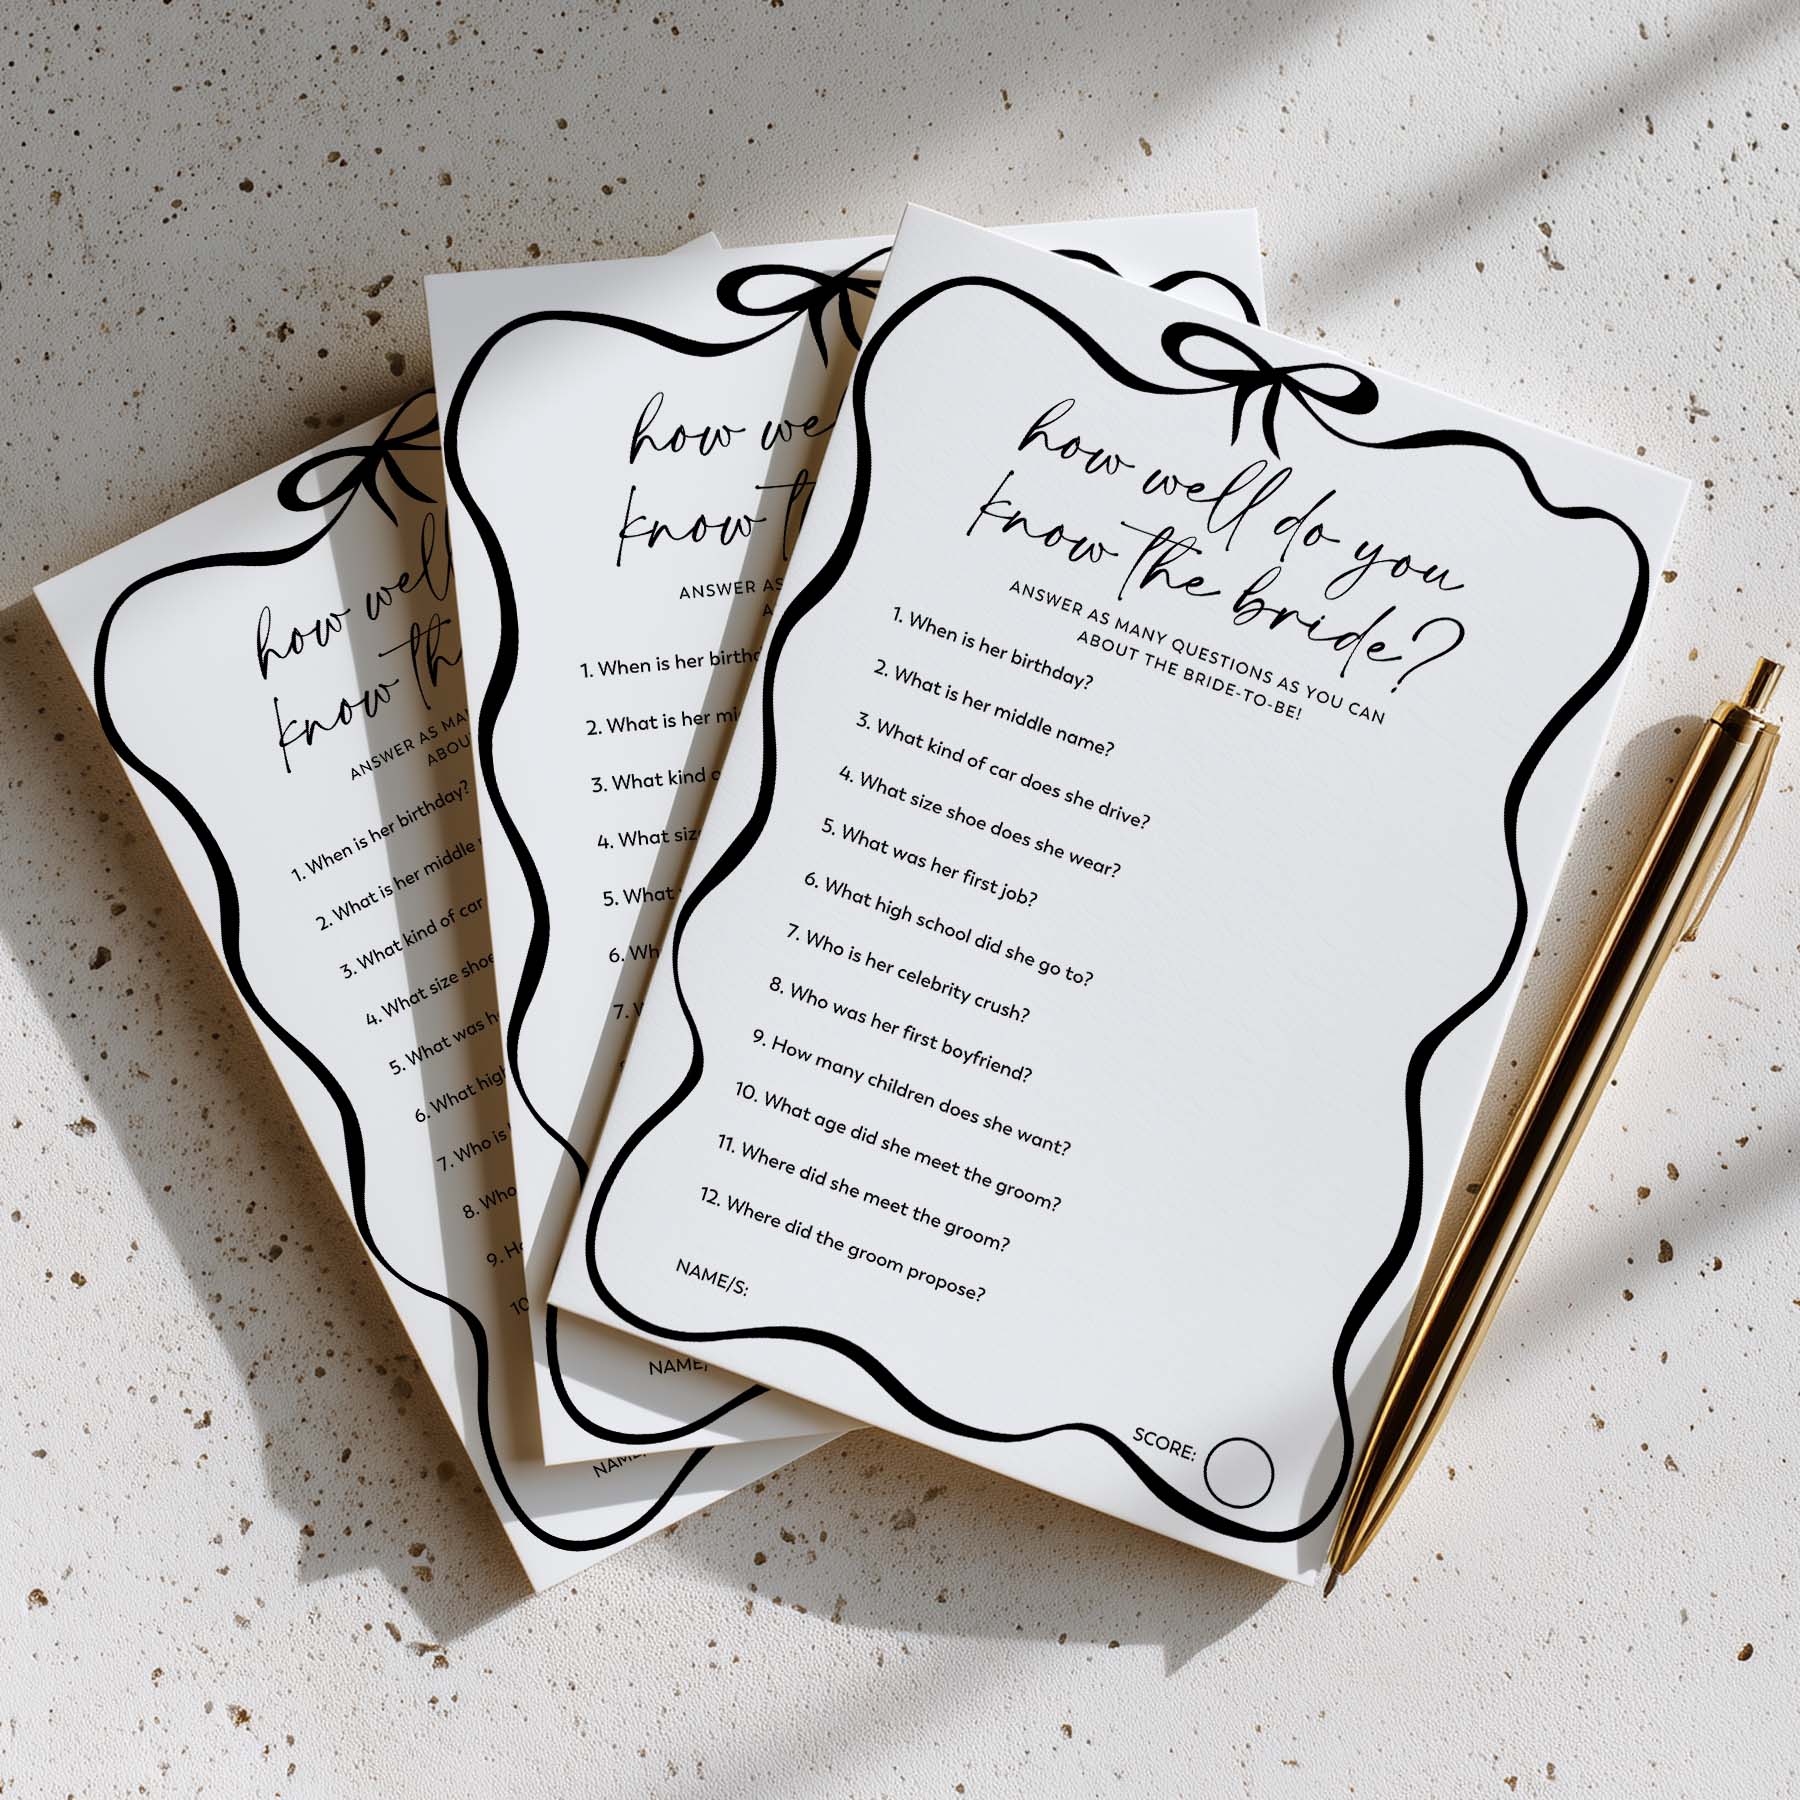 how well
know the
ANSWER AS
1. When is her birthday?
2. What is her middle
3. What kind of car
4. What size shoe
5. What was
6. What high
7. Who is
8. Who
9.
10
how we
know
ANSWER AS
1. When is her
2. What is her
3. What kind
4. What
5. What
6.
7.
how well do you
know the bride?
ANSWER AS MANY QUESTIONS AS YOU CAN
ABOUT THE BRIDE-TO-BE!
1. When is her birthday?
2. What is her middle name?
3. What kind of car does she drive?
4. What size shoe does she wear?
5. What was her first job?
6. What high school did she go to?
7. Who is her celebrity crush?
8. Who was her first boyfriend?
9. How many children does she want?
10. What age did she meet the groom?
11. Where did she meet the groom?
12. Where did the groom propose?
NAME/S:
SCORE: